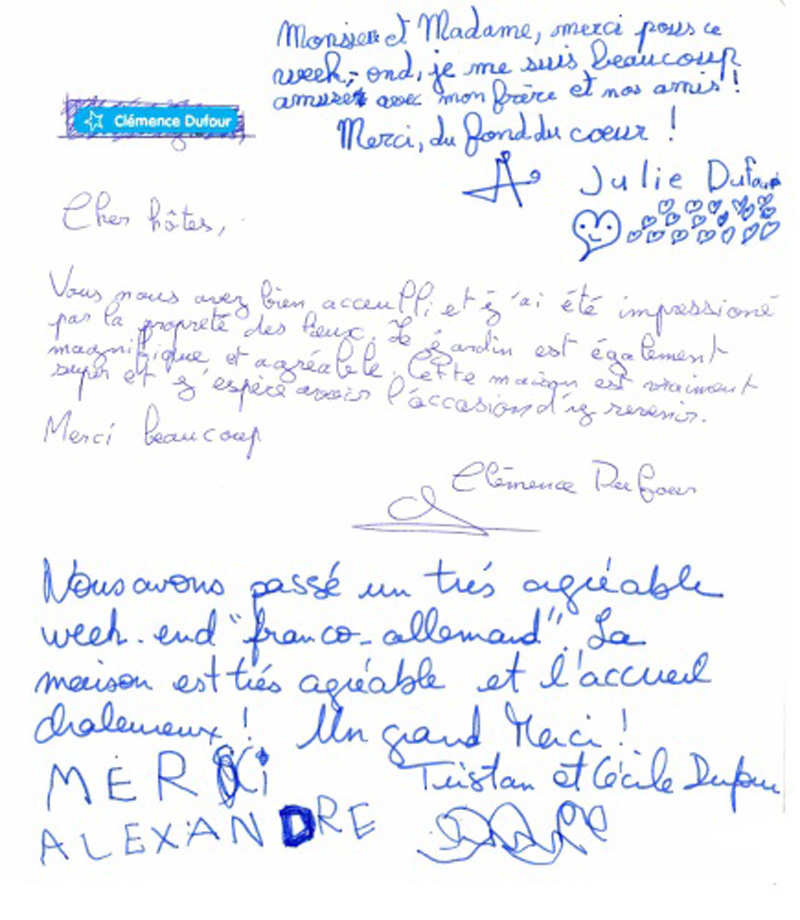 Monsieur et Madame, merci pour ce
week-end, je me suis beaucoup
amuser avec mon frère et nos amis !
Merci, du fond du cœur !
Julie Dufour
Clémence Dufour
Cher hôtes,
Vous nous avez bien acceulli et j'ai été impressioné
par la propreté des lieux. Le jardin est également
magnifique et agréable. Cette maison est vraiment
super et j'espère avoir l'occasion d'y revenir.
Merci beaucoup
Clémence Dufour
Nous avons passé un trés agréable
week-end "franco-allemand". La
maison est trés agréable et l'accueil
chaleureux ! Un grand Merci !
Tristan et Cécile Dufour
MERCi
ALEXANDRE